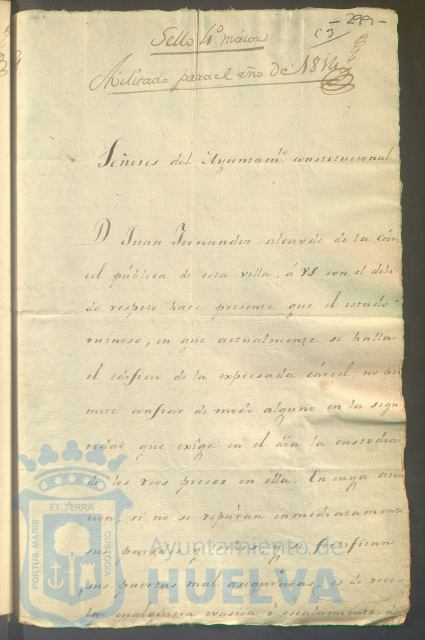 - 299 -
C 3
Sello 4.º maior
Abilitado para el año de 1814
Señores del Ayuntam.to constitucional
D. Juan Fernandez alcayde de la Cár
cel pública de esta villa, á VS con el debi
do respeto hace presente que el estado
ruinoso, en que actualmente se halla
el edificio de la expresada cárcel no per
mite confiar de modo alguno en la segu
ridad que exige en el dia la custodia
de los reos presos en ella. En cuya aten
cion, si no se reparan inmediatamente
sus paredes y
sus puertas mal aseguradas, es de rece
lar qualquiera evasion ó escalamiento
PORTUS MARIS ET TERRÆ CUSTODIA
Ayuntamiento de
HUELVA